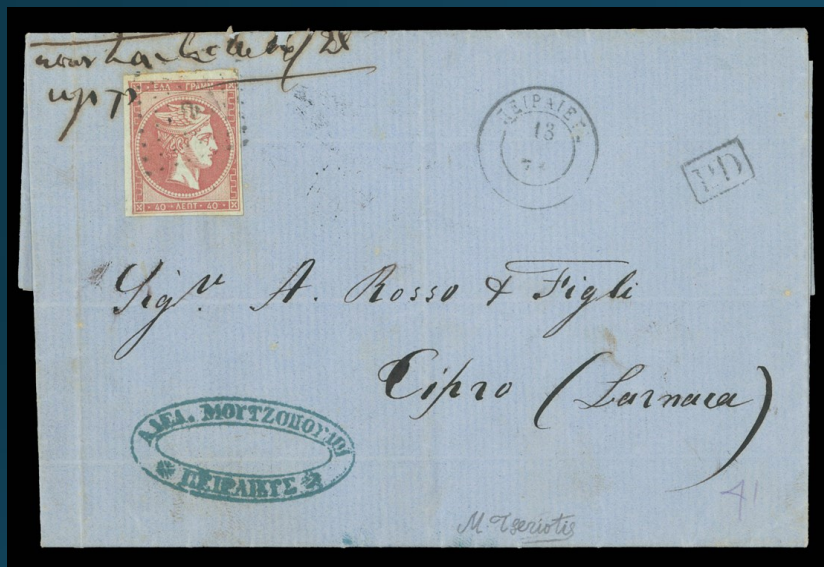 ΕΛΛ ΓΡΑΜΜ
40 ΛΕΠΤ 40
ΠΕΙΡΑΙΕΥΣ
18
PD
Sigri A. Rosso & Figli
Cipro (Larnaca)
ΑΔΕΛ. ΜΟΥΤΖΟΠΟΥΛΟΙ
ΠΕΙΡΑΙΕΥΣ
M. Tseriotis
41